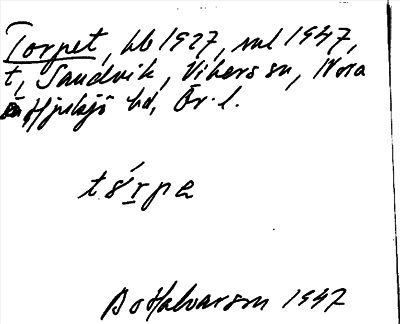 Torpet, hb 1927, ml 1947,
t, Sandvik, Vikers sn, Nora
o Hjulsjö bd, Ör. l.
tórpe
Bo Halvarson 1947